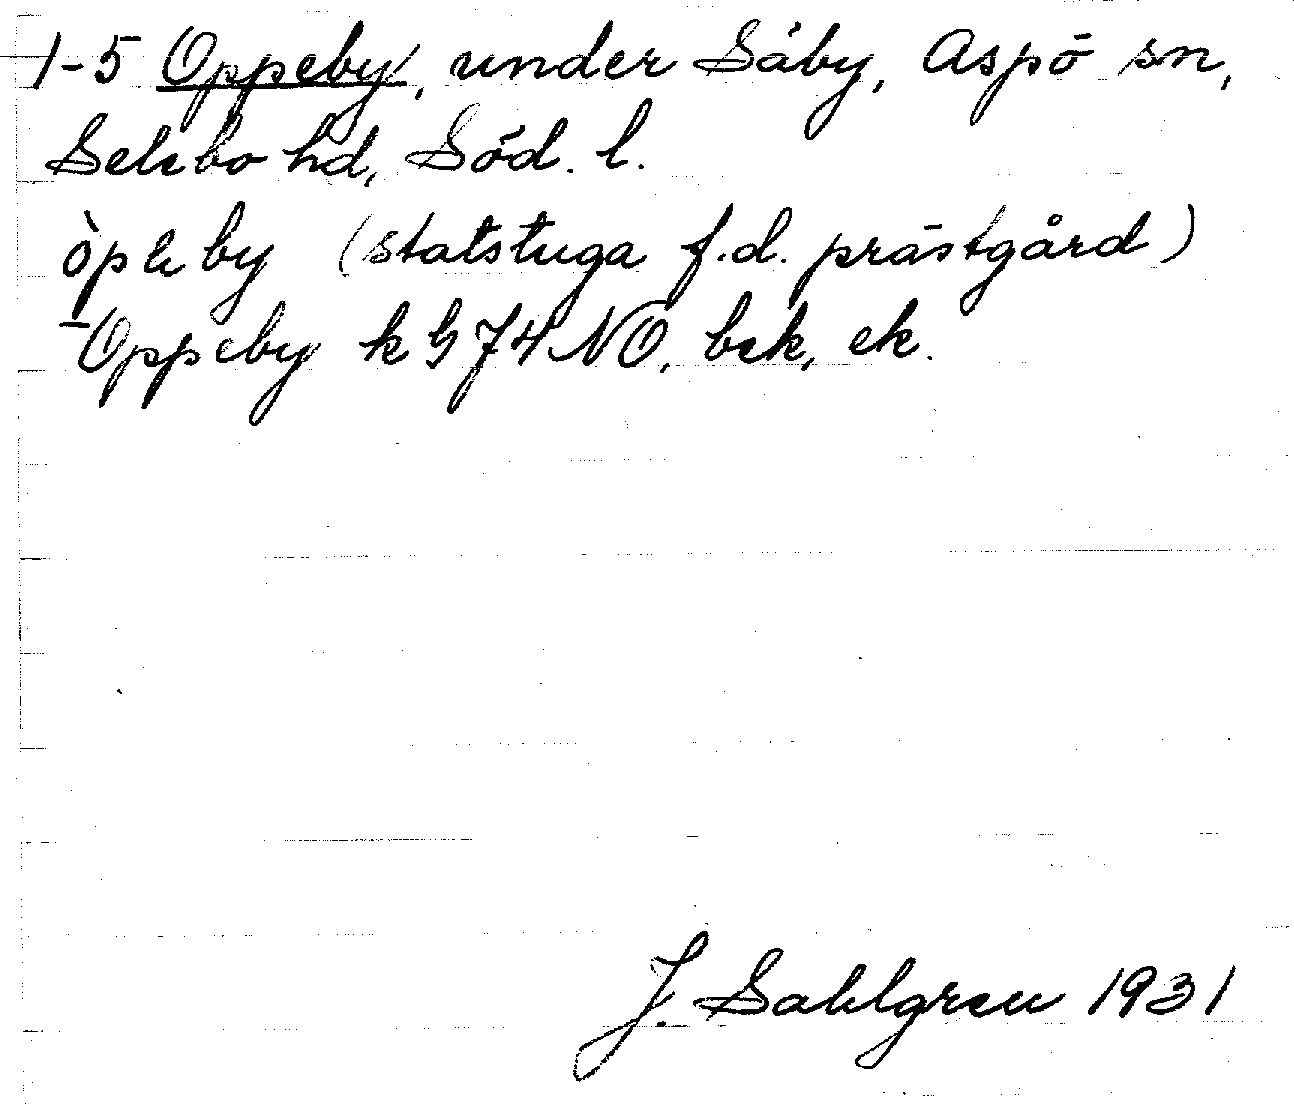 1-5 Oppeby, under Säby, Aspö sn,
Selebo hd, Söd. l.
òpleby (statstuga f.d. prästgård)
Oppeby k G 74 NO. bek, ek.
J. Sahlgren 1931